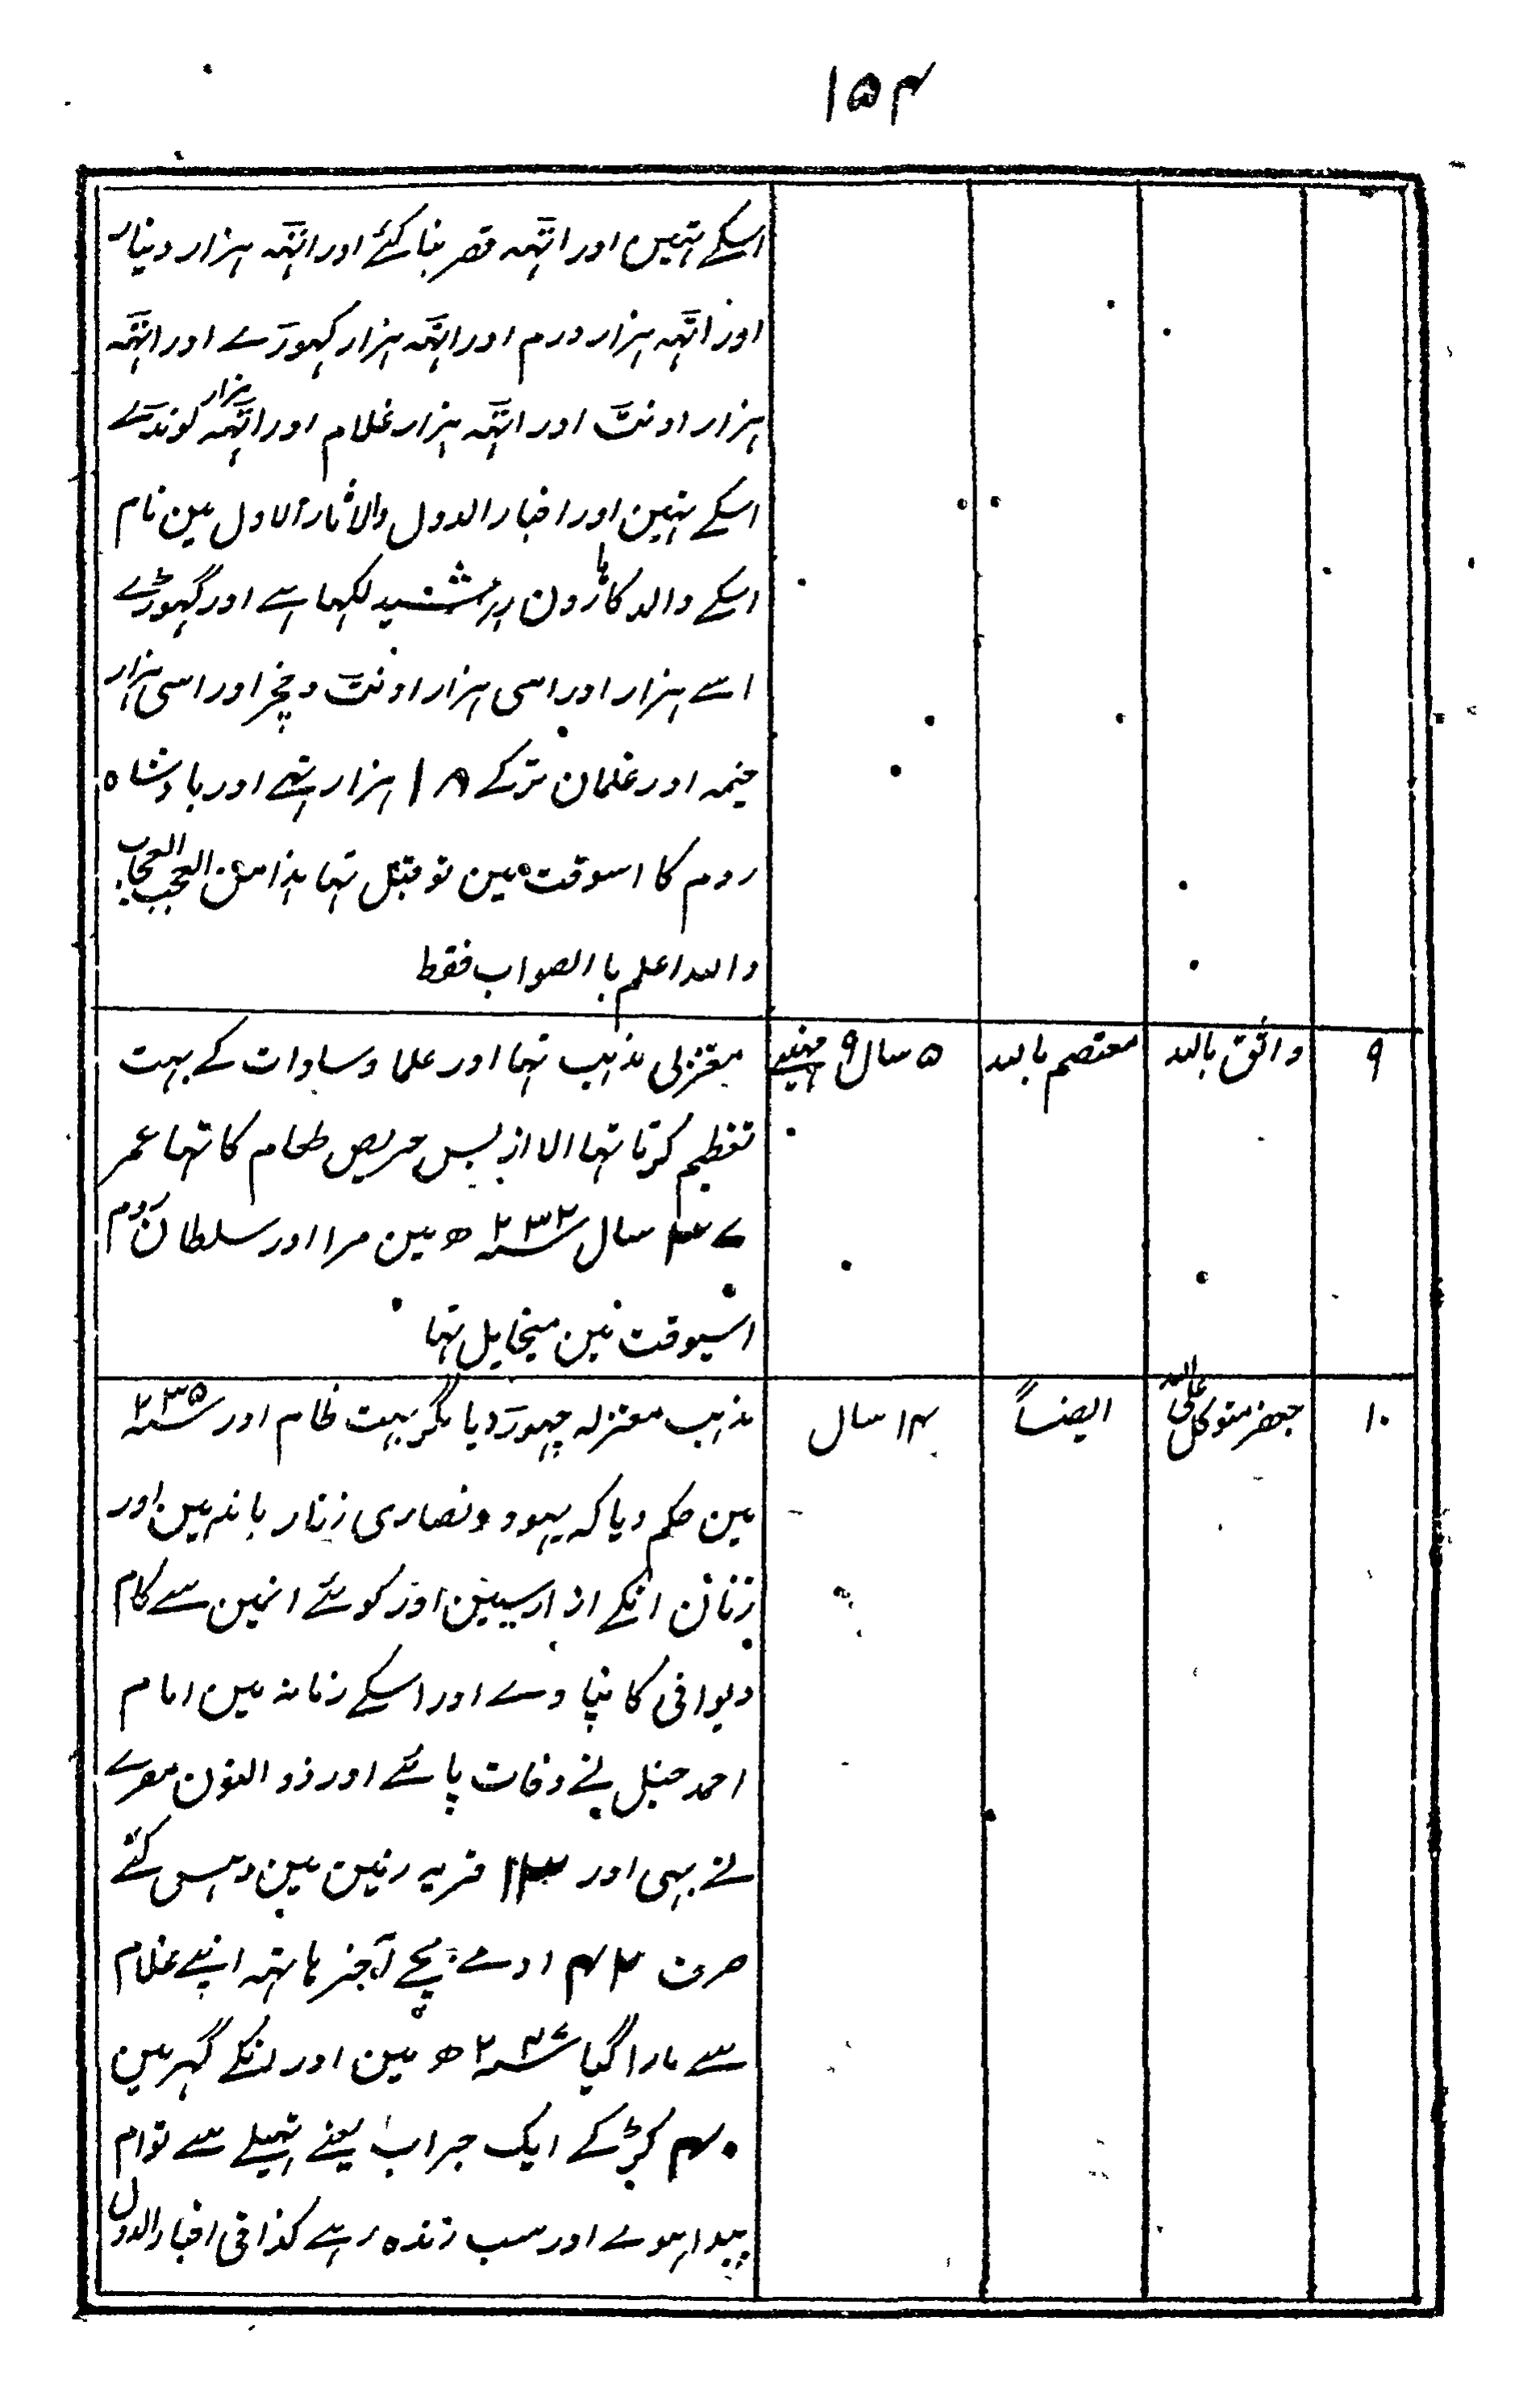 ۱۵۴
اسکے تہیں اور اتہہ قصر بنا کئے اور اتہہ ہزار دینار
اور اتہہ ہزار درم اور اتہہ ہزار کہورے اور اتہہ
ہزار اونٹ اور اتہہ ہزار غلام اور اتہہ ہزار لونڈے
اسکے تہین اور اخبار الدول والاثار الاول مین نام
اسکے والد کا ہارون رشید لکہا ہے اور گہوڑے
اسے ہزار اور اسی ہزار اونٹ و خچر اور اسی ہزار
خیمہ اور غلمان ترکے ۱۸ ہزار تہے اور بادشاہ
روم کا اسوقت مین توفیل تہا ہذا من العجب العجاب
واللہ اعلم باالصواب فقط
۹ واثق باللہ معتصم باللہ ۵ سال ۹ مہینے معتزلی مذہب تہا اور علما و سادات کے بہت
تعظیم کرتا تہا الا از بس حریص طعام کا تہا عمر
۳۷ سال سنہ ۲۳۲ ھ مین مرا اور سلطان روم
اسیوقت مین میخایل تہا
۱۰ جعفر متوکل علی اللہ ایضاً ۱۴ سال مذہب معتزلہ چہوڑدیا مگر بہت ظالم اور سنہ ۲۳۵
مین حکم دیا کہ یہود و نصاری زنار باندہین اور
زنان انکے ازار سیین اور کوئے انمین سے کام
دیوانی کا نپاوے اور اسکے زمانہ مین امام
احمد حنبل نے وفات پائے اور ذو النون مصرے
نے بہی اور ۱۳ قریہ زمین مین دہس گئے
صرف ۴۲ ادمے بچے آخر ہاتہہ اپنے غلام
سے مارا گیا سنہ ۲۴۷ ھ مین اور انکے گہر مین
۴۰ لڑکے ایک جراب یعنے تہیلے سے توام
پیدا ہوے اور سب زندہ رہے کذا فی اخبار الدول